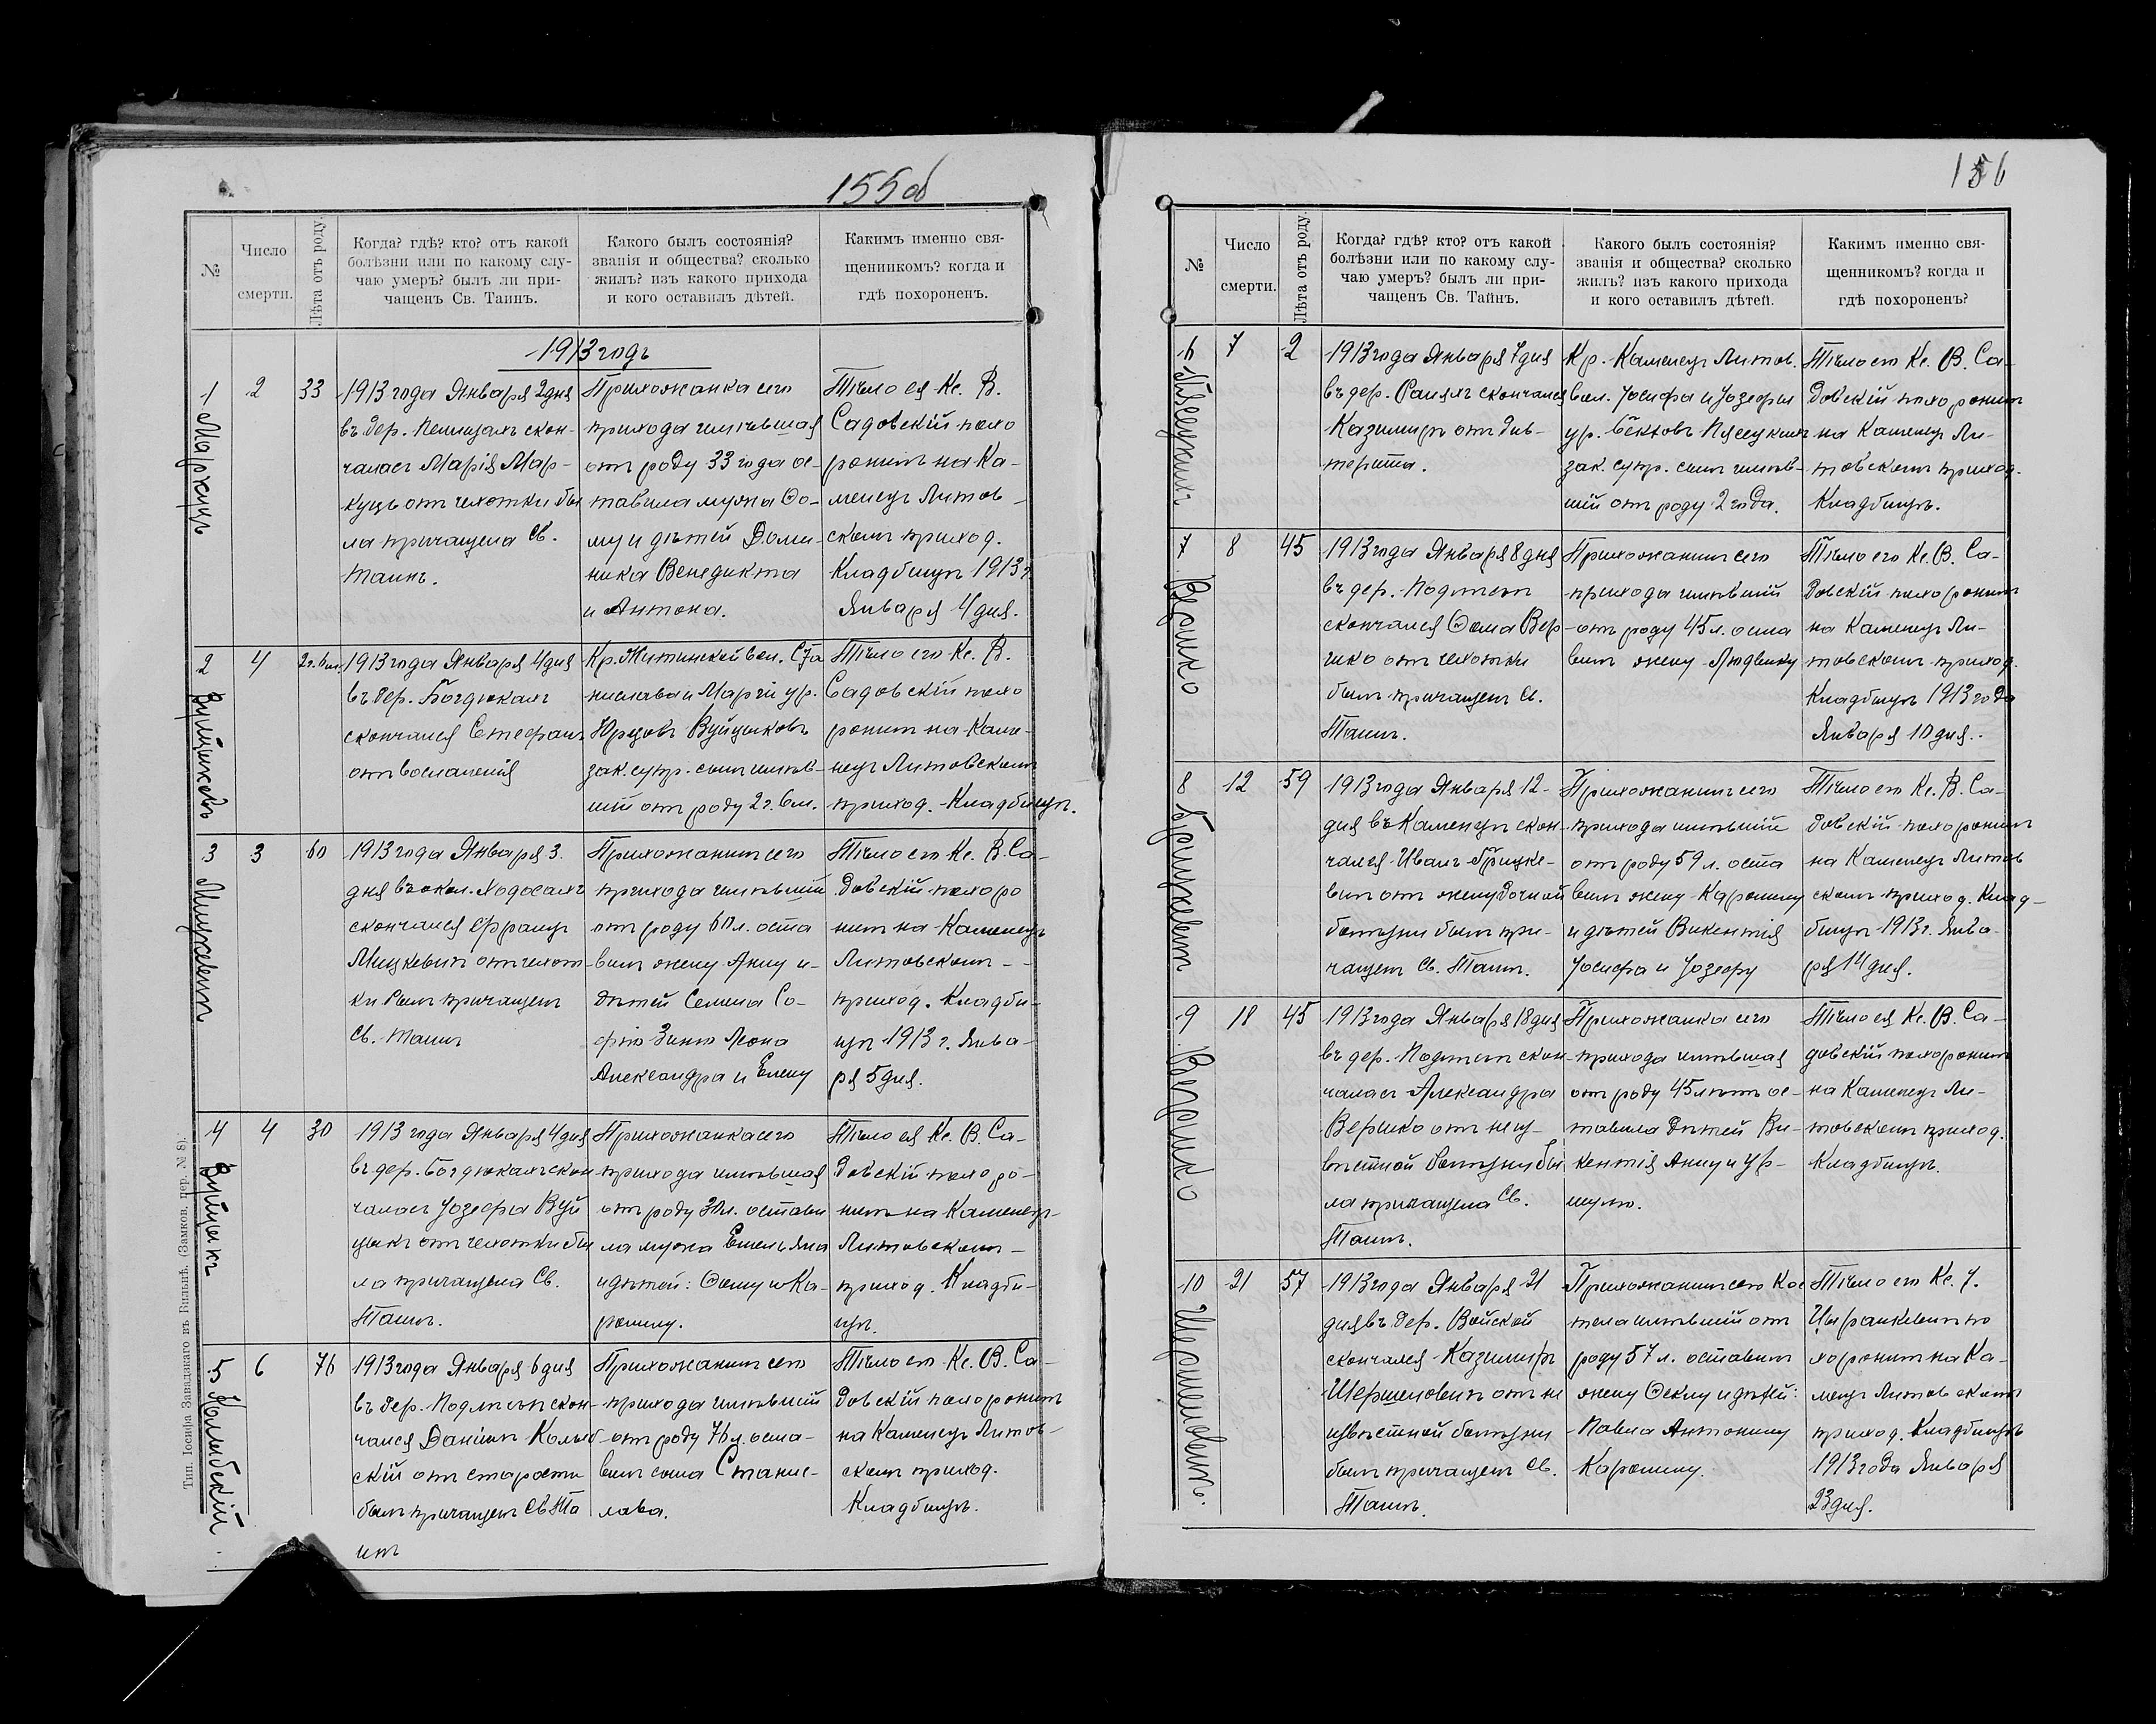 155об
№
Число
смерти.
Лѣта отъ роду.
Когда? гдѣ? кто? отъ какой
болѣзни или по какому слу-
чаю умеръ? былъ ли при-
чащенъ Св. Таинъ.
Какого былъ состоянія?
званія и общества? сколько
жилъ? изъ какого прихода
и кого оставилъ дѣтей.
Какимъ именно свя-
щенникомъ? когда и
гдѣ похороненъ.
1913 годъ
1
Маркуцъ
2
33
1913 года Января 2 дня
въ дер. скон-
чалась Марія Мар-
куцъ отъ чахотки бы
ла причащена Св.
Таинъ.
Прихожанка сего
прихода имѣвшая
отъ роду 33 года ос-
тавила мужа Ѳо-
му и дѣтей Доми-
ника Венедикта
и Антона.
Тѣло ея Кс. В.
Садовскій похо
ронилъ на Ка-
менецъ Литов-
скомъ приход.
Кладбищѣ 1913 г.
Января 4 дня.
2
Вуйциковъ
4
2 г. 6 м.
1913 года Января 4 дня
въ дер. Богдюкахъ
скончался Стефанъ
отъ воспаленія
Кр. Житинской вол. Ста
нислава и Маріи ур.
Вуйциковъ
зак. супр. сынъ имѣв-
шій отъ роду 2 г. 6 м.
Тѣло его Кс. В.
Садовскій похо
ронилъ на Каме-
нецъ Литовскомъ
приход. Кладбищѣ.
3
Мицкевичъ
3
60
1913 года Января 3
дня въ окол. Ходосахъ
скончался Францъ
Мицкевичъ отъ чахот-
ки былъ причащенъ
Св. Таинъ
Прихожанинъ сего
прихода имѣвшій
отъ роду 60 л. оста
вилъ жену Анну и
дѣтей Семена Со-
фію Зиню Леона
Александра и Елену
Тѣло его Кс. В. Са-
довскій похоро
нилъ на Каменецъ
Литовскомъ
приход. Кладби-
щѣ 1913 г. Янва-
ря 5 дня.
4
Вуйцикъ
4
30
1913 года Января 4 дня
въ дер. Богдюкахъ скон
чалась Іозефа Вуй
цикъ отъ чахотки бы
ла причащена Св.
Таинъ.
Прихожанка сего
прихода имѣвшая
отъ роду 30 л. остави
ла мужа Емельяна
и дѣтей: Ѳому и Ка-
ролину.
Тѣло ея Кс. В. Са-
довскій похоро-
нилъ на Каменецъ
Литовскомъ
приход. Кладби-
щѣ.
5
Колыбскій
6
76
1913 года Января 6 дня
въ дер. Подлѣсьѣ скон-
чался Даніилъ Колыб
скій отъ старости
былъ причащенъ Св. Та
инъ
Прихожанинъ сего
прихода имѣвшій
отъ роду 76 л. оста-
вилъ сына Станис-
лава.
Тѣло его Кс. В. Са-
довскій похоронилъ
на Каменецъ Литов-
скомъ приход.
Кладбищѣ.
Тип. Іосифа Завадзкаго въ Вильнѣ, (Замков. пер. № 8).
156
№
Число
смерти.
Лѣта отъ роду.
Когда? гдѣ? кто? отъ какой
болѣзни или по какому слу-
чаю умеръ? былъ ли при-
чащенъ Св. Тайнъ.
Какого былъ состоянія?
званія и общества? сколько
жилъ? изъ какого прихода
и кого оставилъ дѣтей.
Какимъ именно свя-
щенникомъ? когда и
гдѣ похороненъ?
6
Пясецкихъ
7
2
1913 года Января 7 дня
въ дер. скончался
Казимиръ отъ диф-
терита.
Кр. Каменецъ Литов.
вол. Іосифа и Іозефы
ур. Пясецкихъ
зак. супр. сынъ имѣв-
шій отъ роду 2 года.
Тѣло его Кс. В. Са-
довскій похоронилъ
на Каменецъ Ли-
товскомъ приход.
Кладбищѣ.
7
Верчко
8
45
1913 года Января 8 дня
въ дер.
скончался Ѳома Вер-
чко отъ чахотки
былъ причащенъ Св.
Таинъ.
Прихожанинъ сего
прихода имѣвшій
отъ роду 45 л. оста
вилъ жену Людвику
Тѣло его Кс. В. Са-
довскій похоронилъ
на Каменецъ Ли-
товскомъ приход.
Кладбищѣ 1913 года
Января 10 дня.
8
Грицкевичъ
12
59
1913 года Января 12
дня въ Каменцѣ скон-
чался Иванъ Грицке-
вичъ отъ желудочной
болѣзни былъ при-
чащенъ Св. Таинъ.
Прихожанинъ сего
прихода имѣвшій
отъ роду 59 л. оста
вилъ жену Каролину
и дѣтей Викентія
Іосифа и Іозефу
Тѣло его Кс. В. Са-
довскій похоронилъ
на Каменецъ Литов
скомъ приход. Клад-
бищѣ 1913 г. Янва-
ря 14 дня.
9
Верчко
18
45
1913 года Января 18 дня
въ дер. скон-
чалась Александра
Верчко отъ неиз-
вѣстной болѣзни бы
ла причащена Св.
Таинъ.
Прихожанка сего
прихода имѣвшая
отъ роду 45 лѣтъ ос-
тавила дѣтей Ви-
кентія Анну и Ур-
шулю.
Тѣло ея Кс. В. Са-
довскій похоронилъ
на Каменецъ Ли-
товскомъ приход.
Кладбищѣ.
10
Шершеновичъ.
21
57
1913 года Января 21
дня въ дер. Войской
скончался Казимиръ
Шершеновичъ отъ не
извѣстной болѣзни
былъ причащенъ Св.
Таинъ.
Прихожанинъ сего Кос
тела имѣвшій отъ
роду 57 л. оставилъ
жену Ѳеклу и дѣтей:
Павла Антонину
Каролину.
Тѣло его Кс. І.
Цыранкевичъ по
хоронилъ на Ка-
менецъ Литовскомъ
приход. Кладбищѣ
1913 года Января
23 дня.